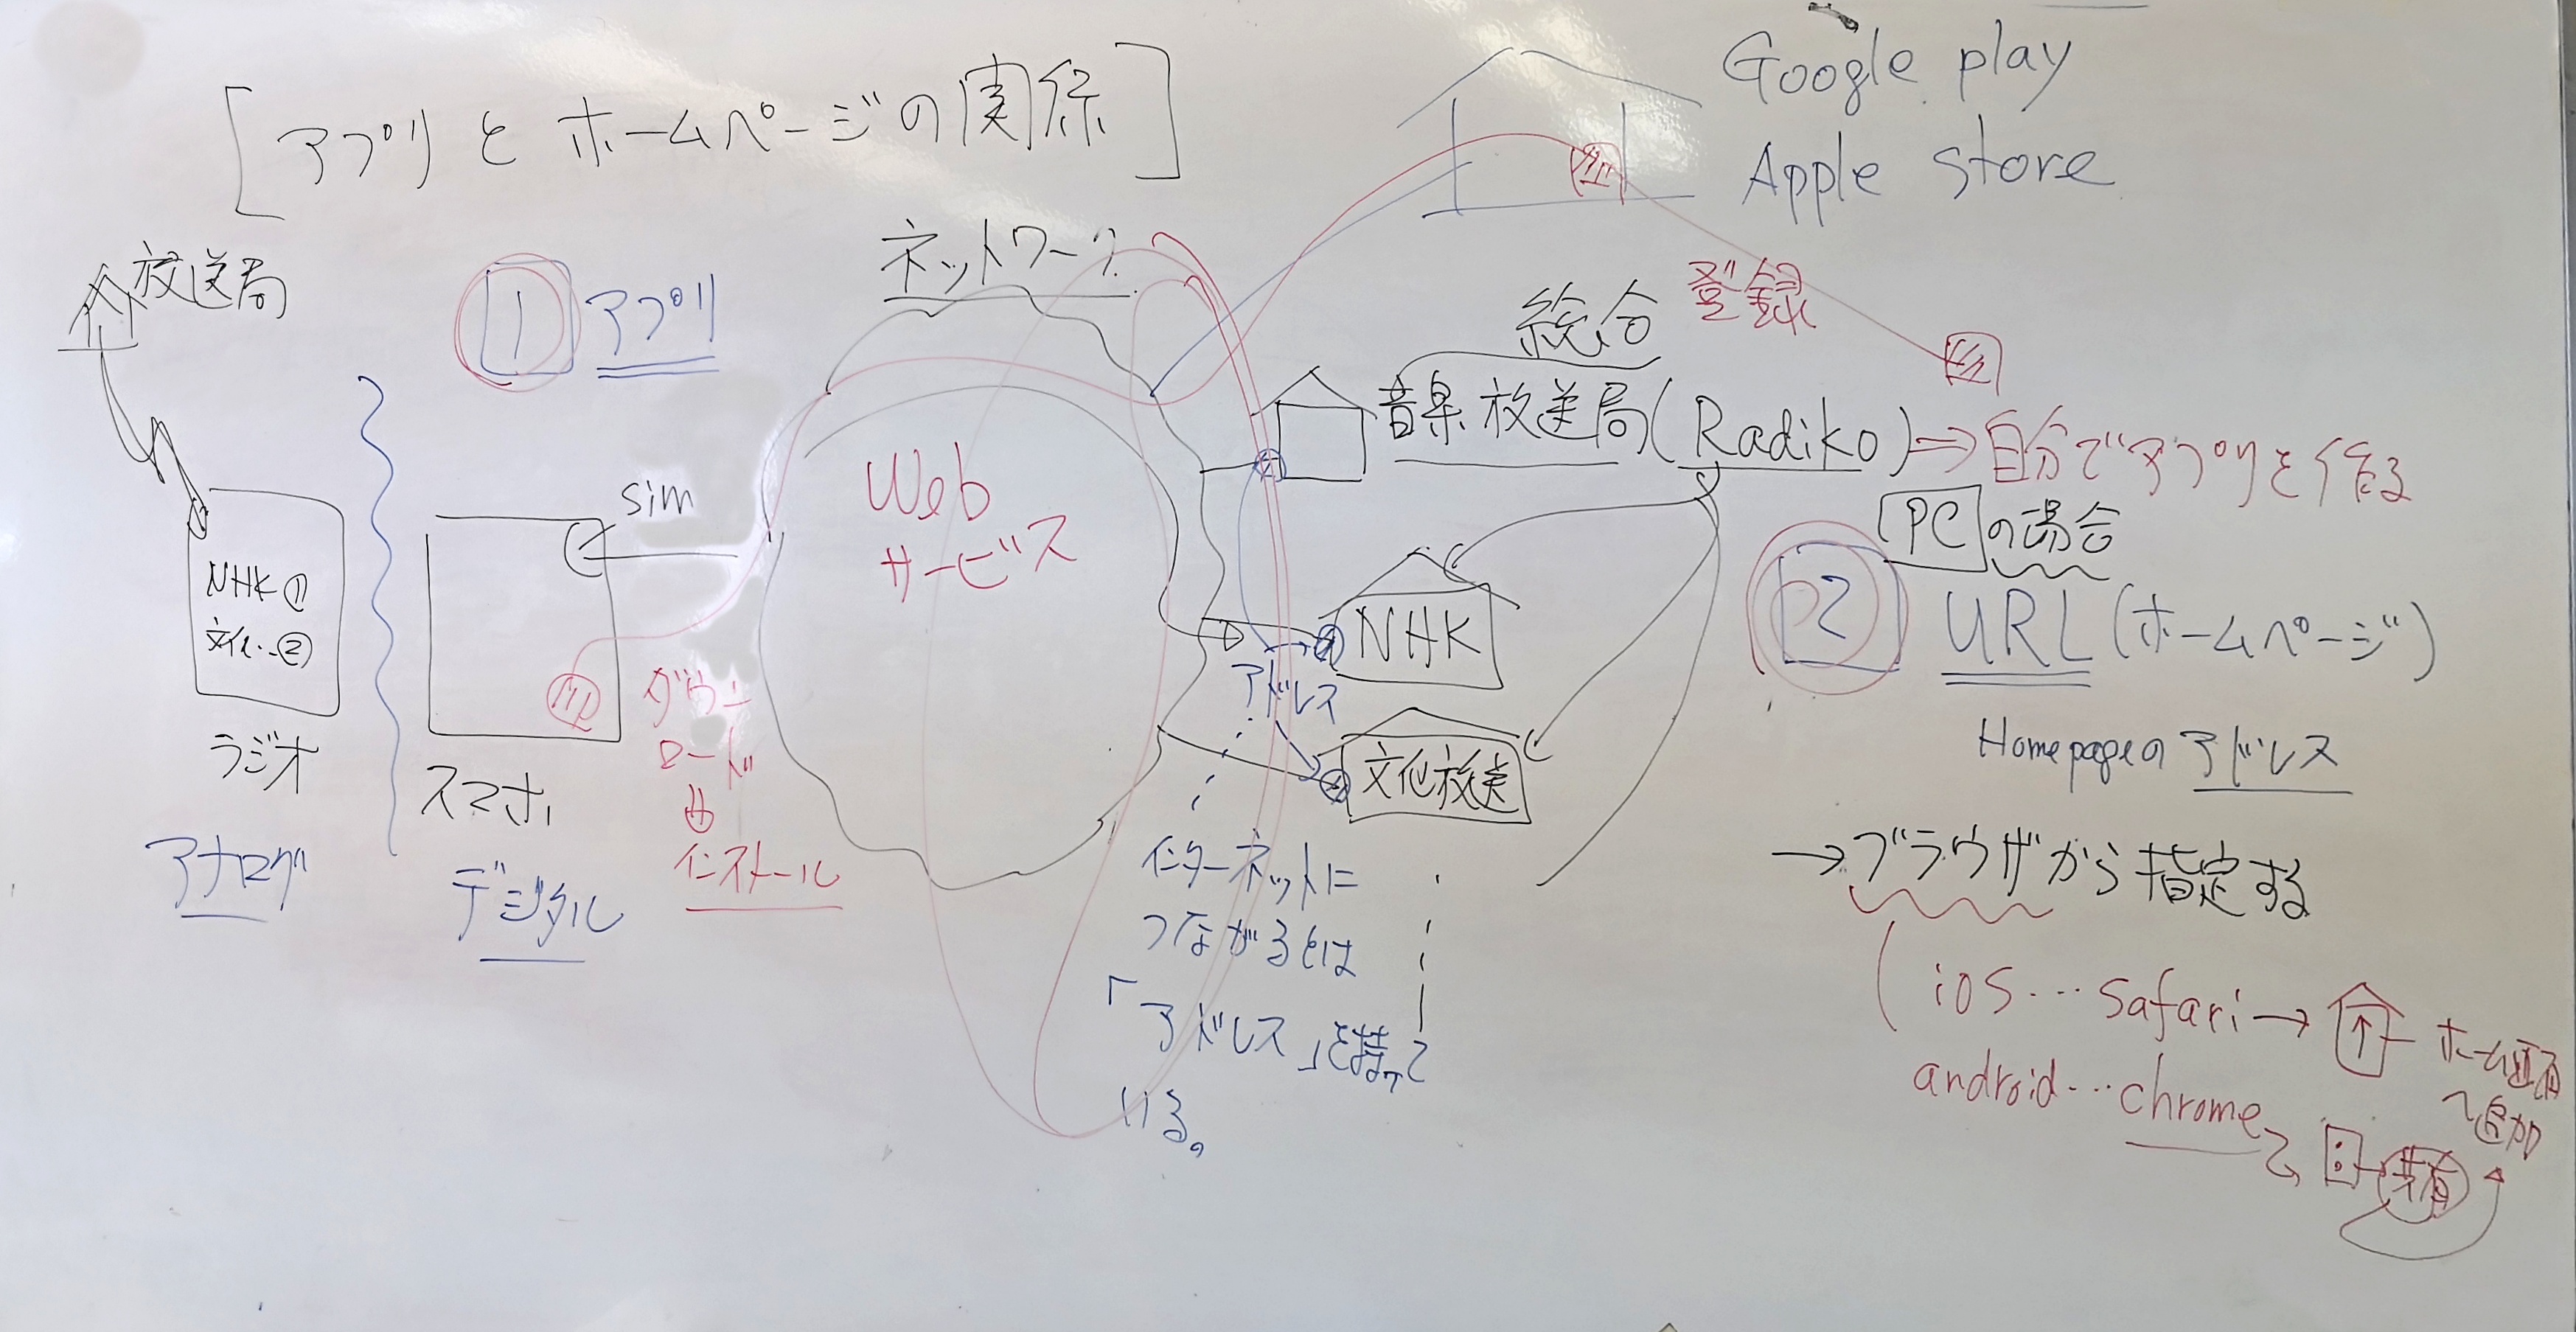 [アプリとホームページの実係]
Google play
Apple store
放送局
1 アプリ
ネットワーク
総合
登録
音楽放送局(Radiko)⇒自分でアプリを作る
Web
サービス
sim
NHK①
文化..②
ラジオ
アナログ
スマホ
デジタル
ダウン
ロード
インストール
NHK
アドレス
文化放送
インターネットに
つながるとは
「アドレス」を持って
いる。
PCの場合
2 URL(ホームページ)
Homepageのアドレス
→ブラウザから指定する
ios…safari→ ↑ ホーム画面
へ追加
android…chrome 共有